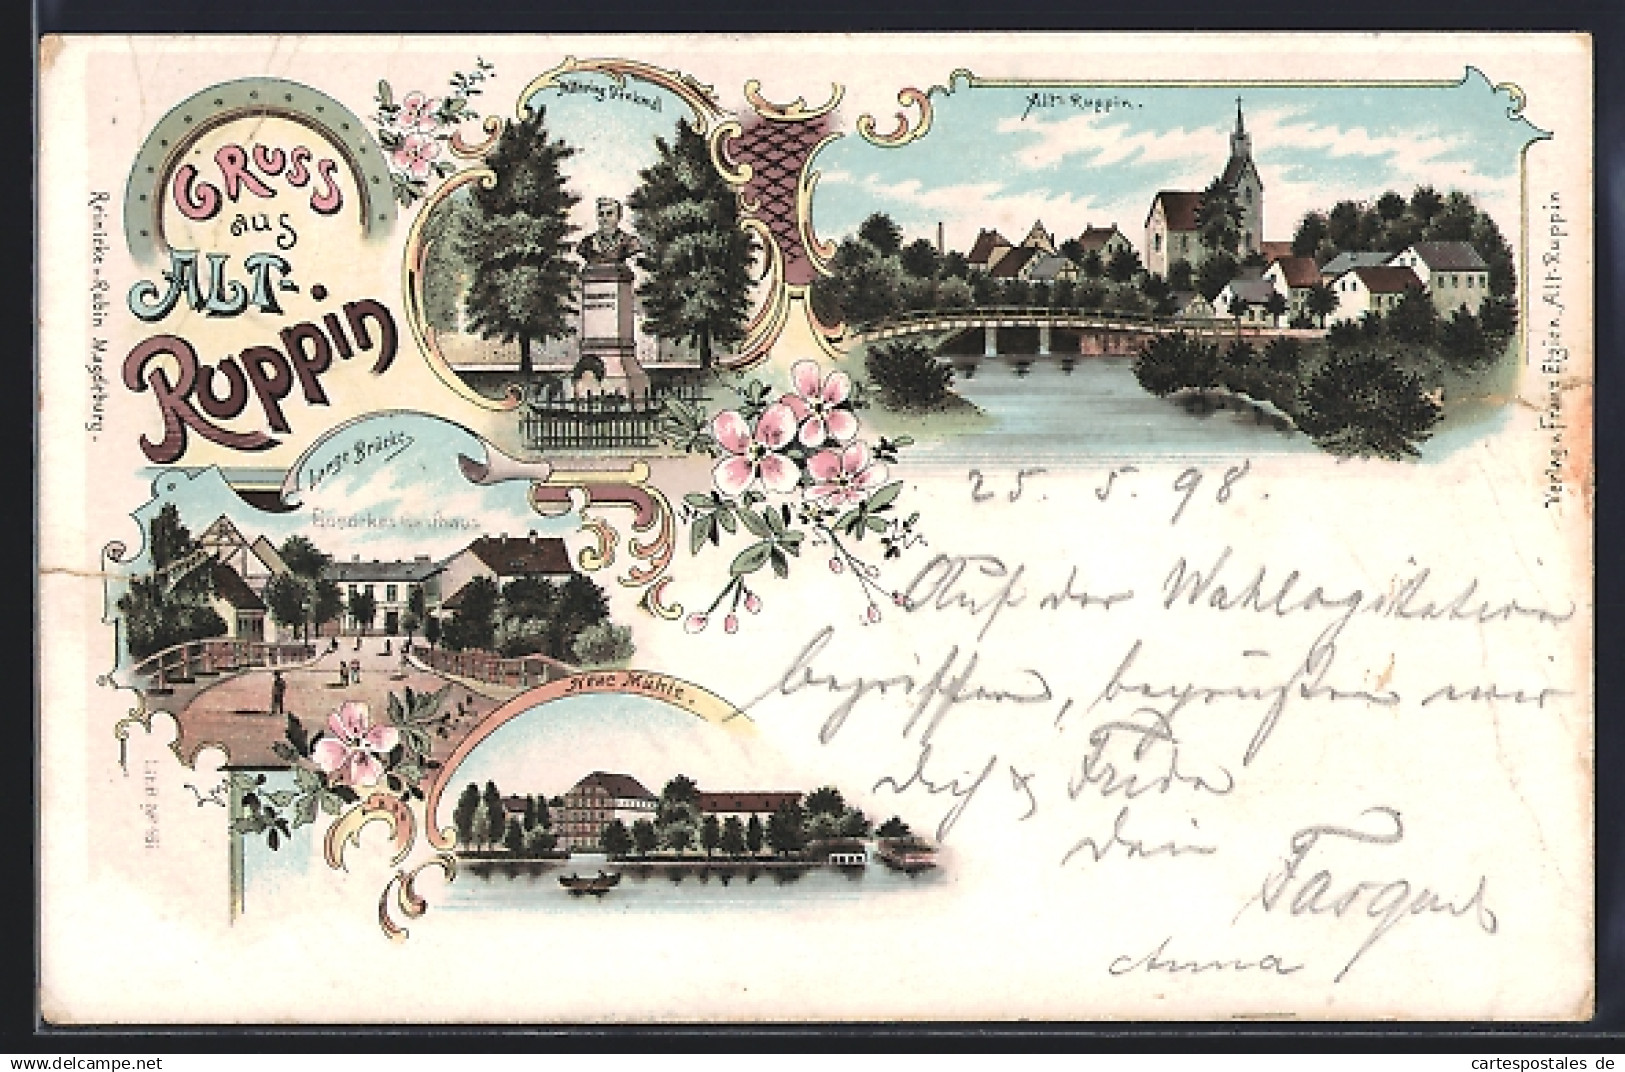 GRUSS
aus
ALT-
Ruppin
Denkmal
Alt-Ruppin.
Lange Brücke
Neue Mühle.
Reinicke-Rubin Magdeburg.
Verlag v. Franz Etzien, Alt-Ruppin
25. 5. 98.
Auf der Wahlagitation
begriffen, begrüßen wir
Dich & Frida
Dein
Anna
cartespostales de